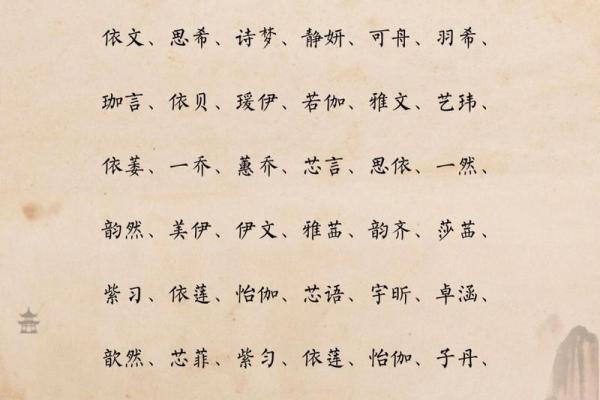 依文、思希、诗梦、静妍、可舟、羽希、
珈言、依贝、瑗伊、若伽、雅文、艺玮、
依萎、一乔、蕙乔、芯言、思依、一然、
韵然、美伊、伊文、雅茁、韵齐、莎茁、
紫习、依莲、怡伽、芯语、宇昕、卓涵、
歆然、芯菲、紫匀、依莲、怡伽、子丹、